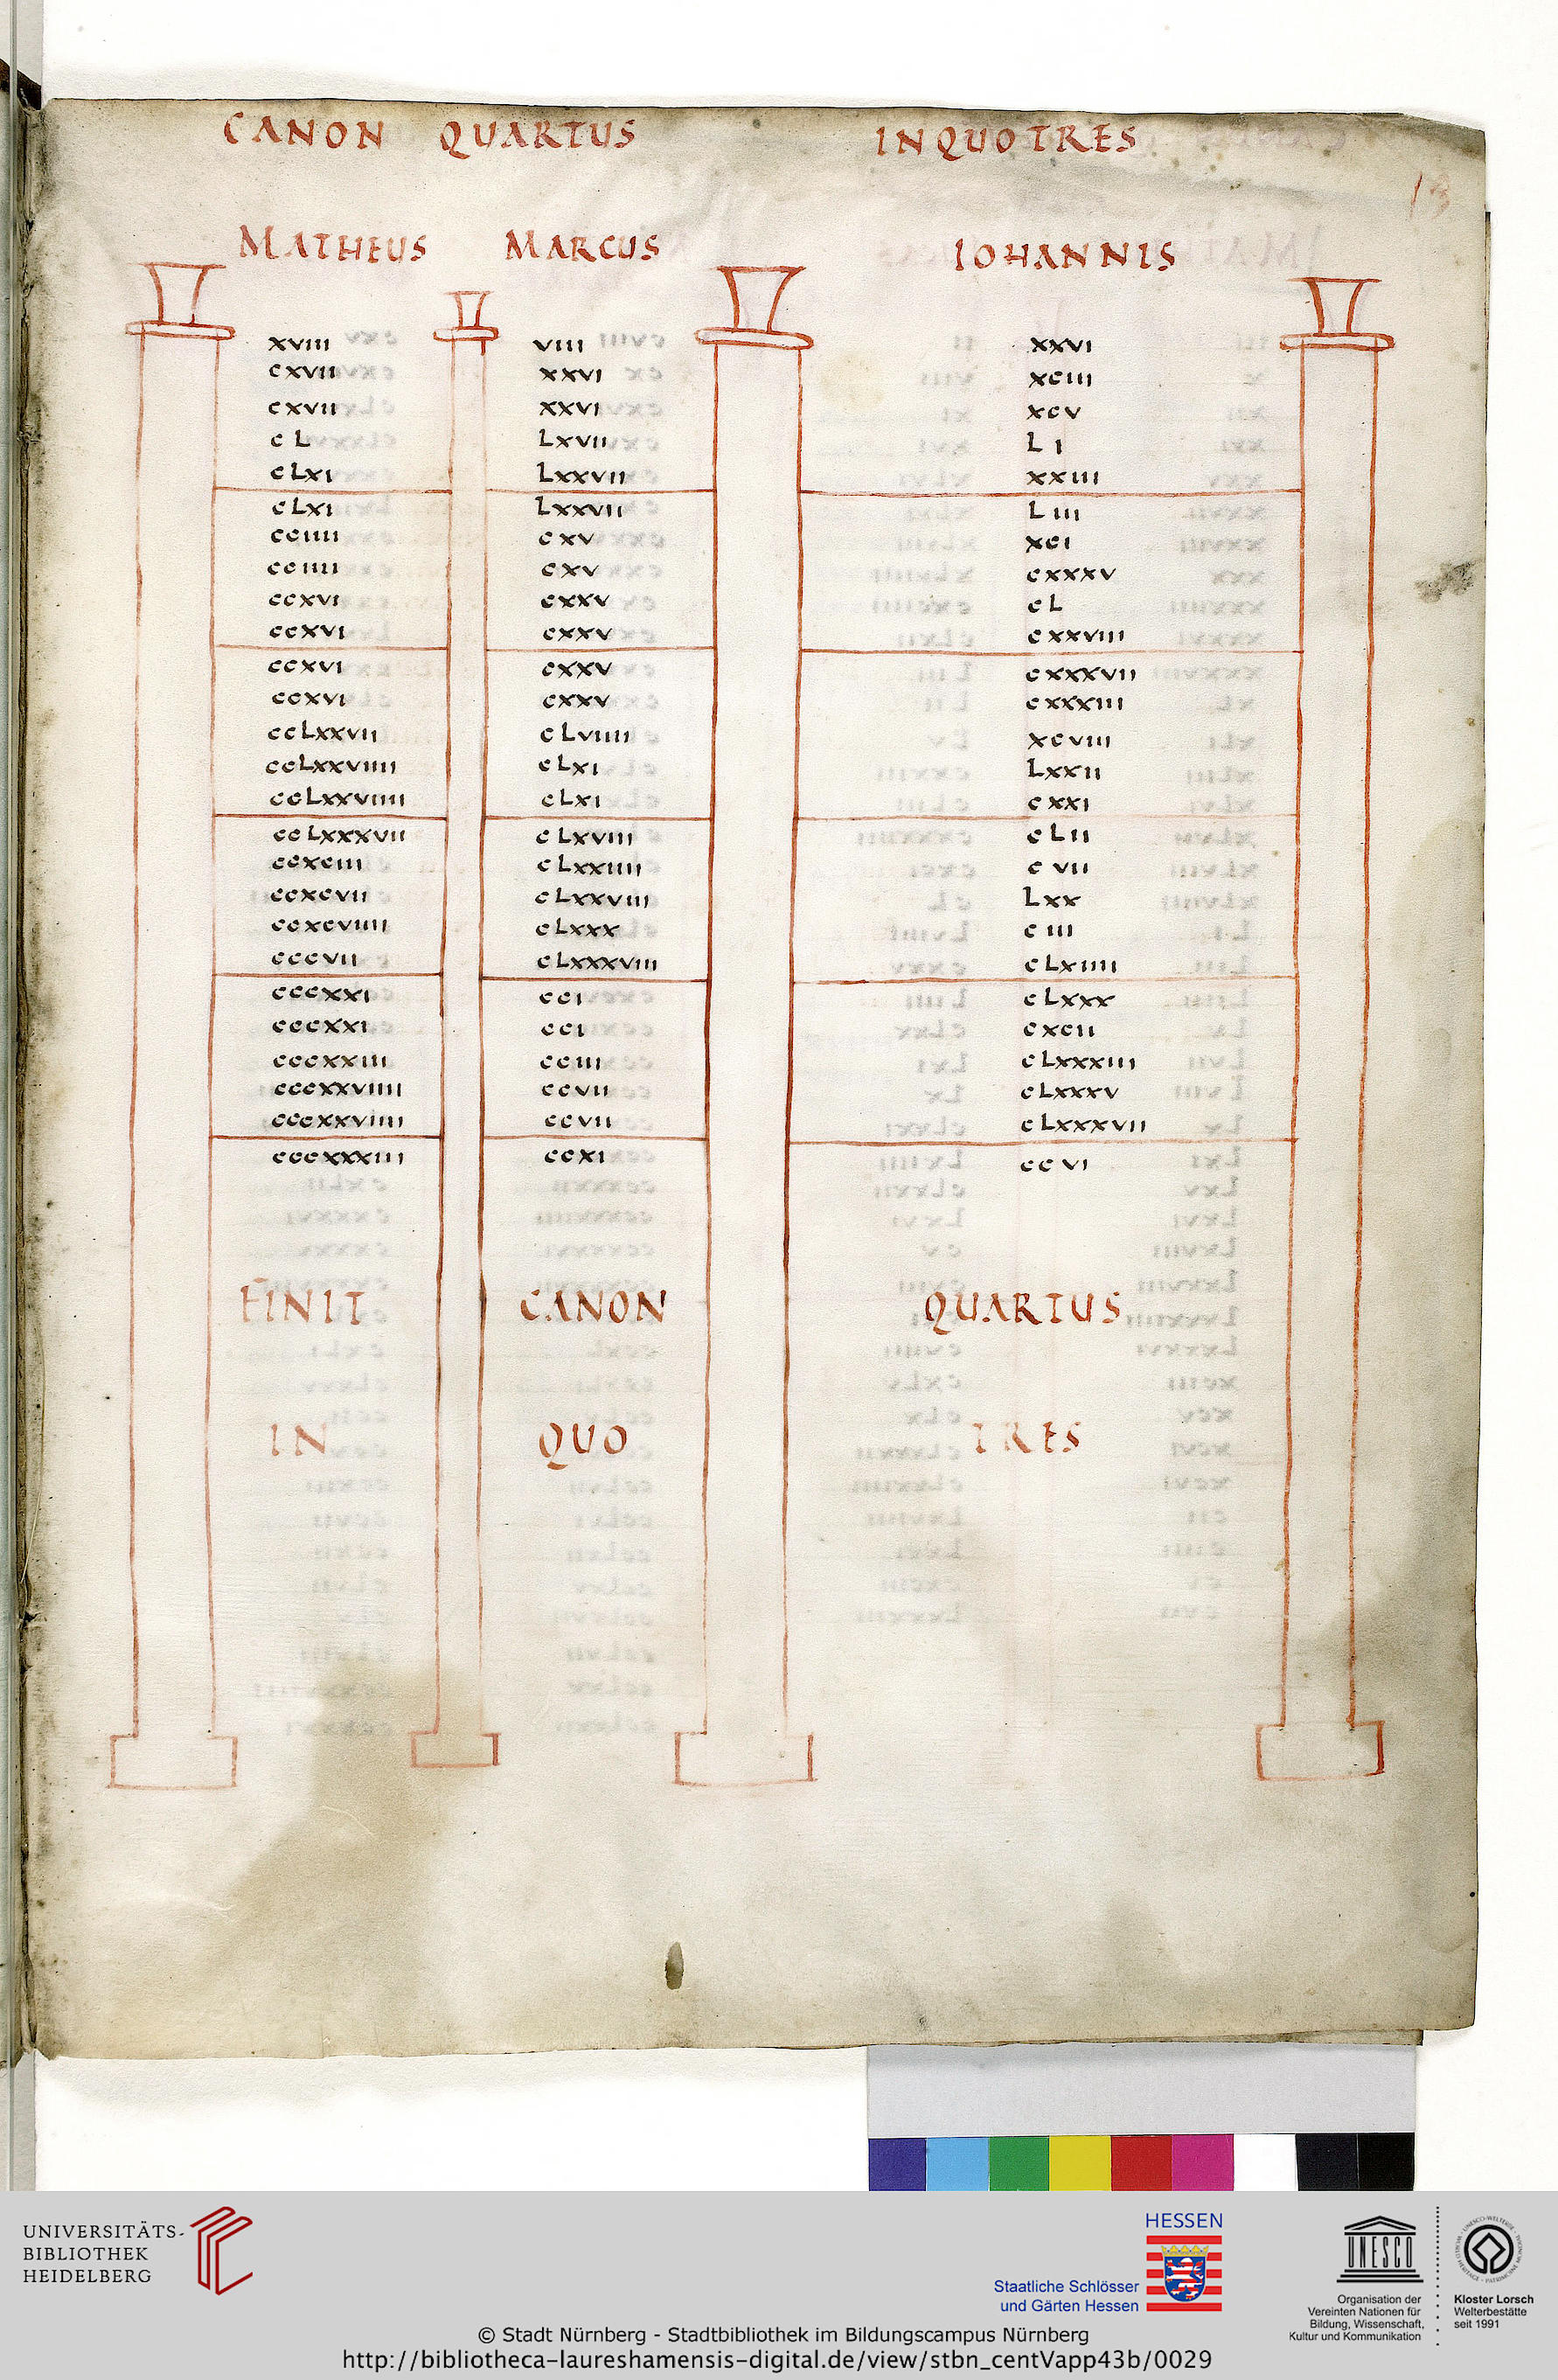 CANON QUARTUS INQUOTRES
13
MATHEUS MARCUS IOHANNIS
xviii viiii xxvi
cxvii xxvi xciii
cxvii xxvi xcv
cL Lxvii LI
cLxi Lxxvii xxiii
cLxi Lxxvii Liii
cciiii cxv xci
cciiii cxv cxxxv
ccxvi cxxv cL
ccxvi cxxv cxxviii
ccxvi cxxv cxxxvii
ccxvi cxxv cxxxiii
ccLxxvii cLviiii xcviii
ccLxxviiii cLxi Lxxii
ccLxxviiii cLxi cxxi
ccLxxxvii cLxviii cLii
ccxciii cLxxiiii cvii
ccxcvii cLxxviii Lxx
ccxcviiii cLxxx ciii
cccvii cLxxxviii cLxiiii
cccxxi cci cLxxx
cccxxi cci cxcii
cccxxiii cciii cLxxxiii
cccxxviiii ccvii cLxxxv
cccxxviiii ccvii cLxxxvii
cccxxxiii ccxi ccvi
FINIT CANON QUARTUS
IN QUO TRES
UNIVERSITÄTS-
BIBLIOTHEK
HEIDELBERG
HESSEN
Staatliche Schlösser
und Gärten Hessen
UNESCO
Organisation der
Vereinten Nationen für
Bildung, Wissenschaft,
Kultur und Kommunikation
Kloster Lorsch
Welterbestätte
seit 1991
© Stadt Nürnberg - Stadtbibliothek im Bildungscampus Nürnberg
http://bibliotheca-laureshamensis-digital.de/view/stbn_centVapp43b/0029